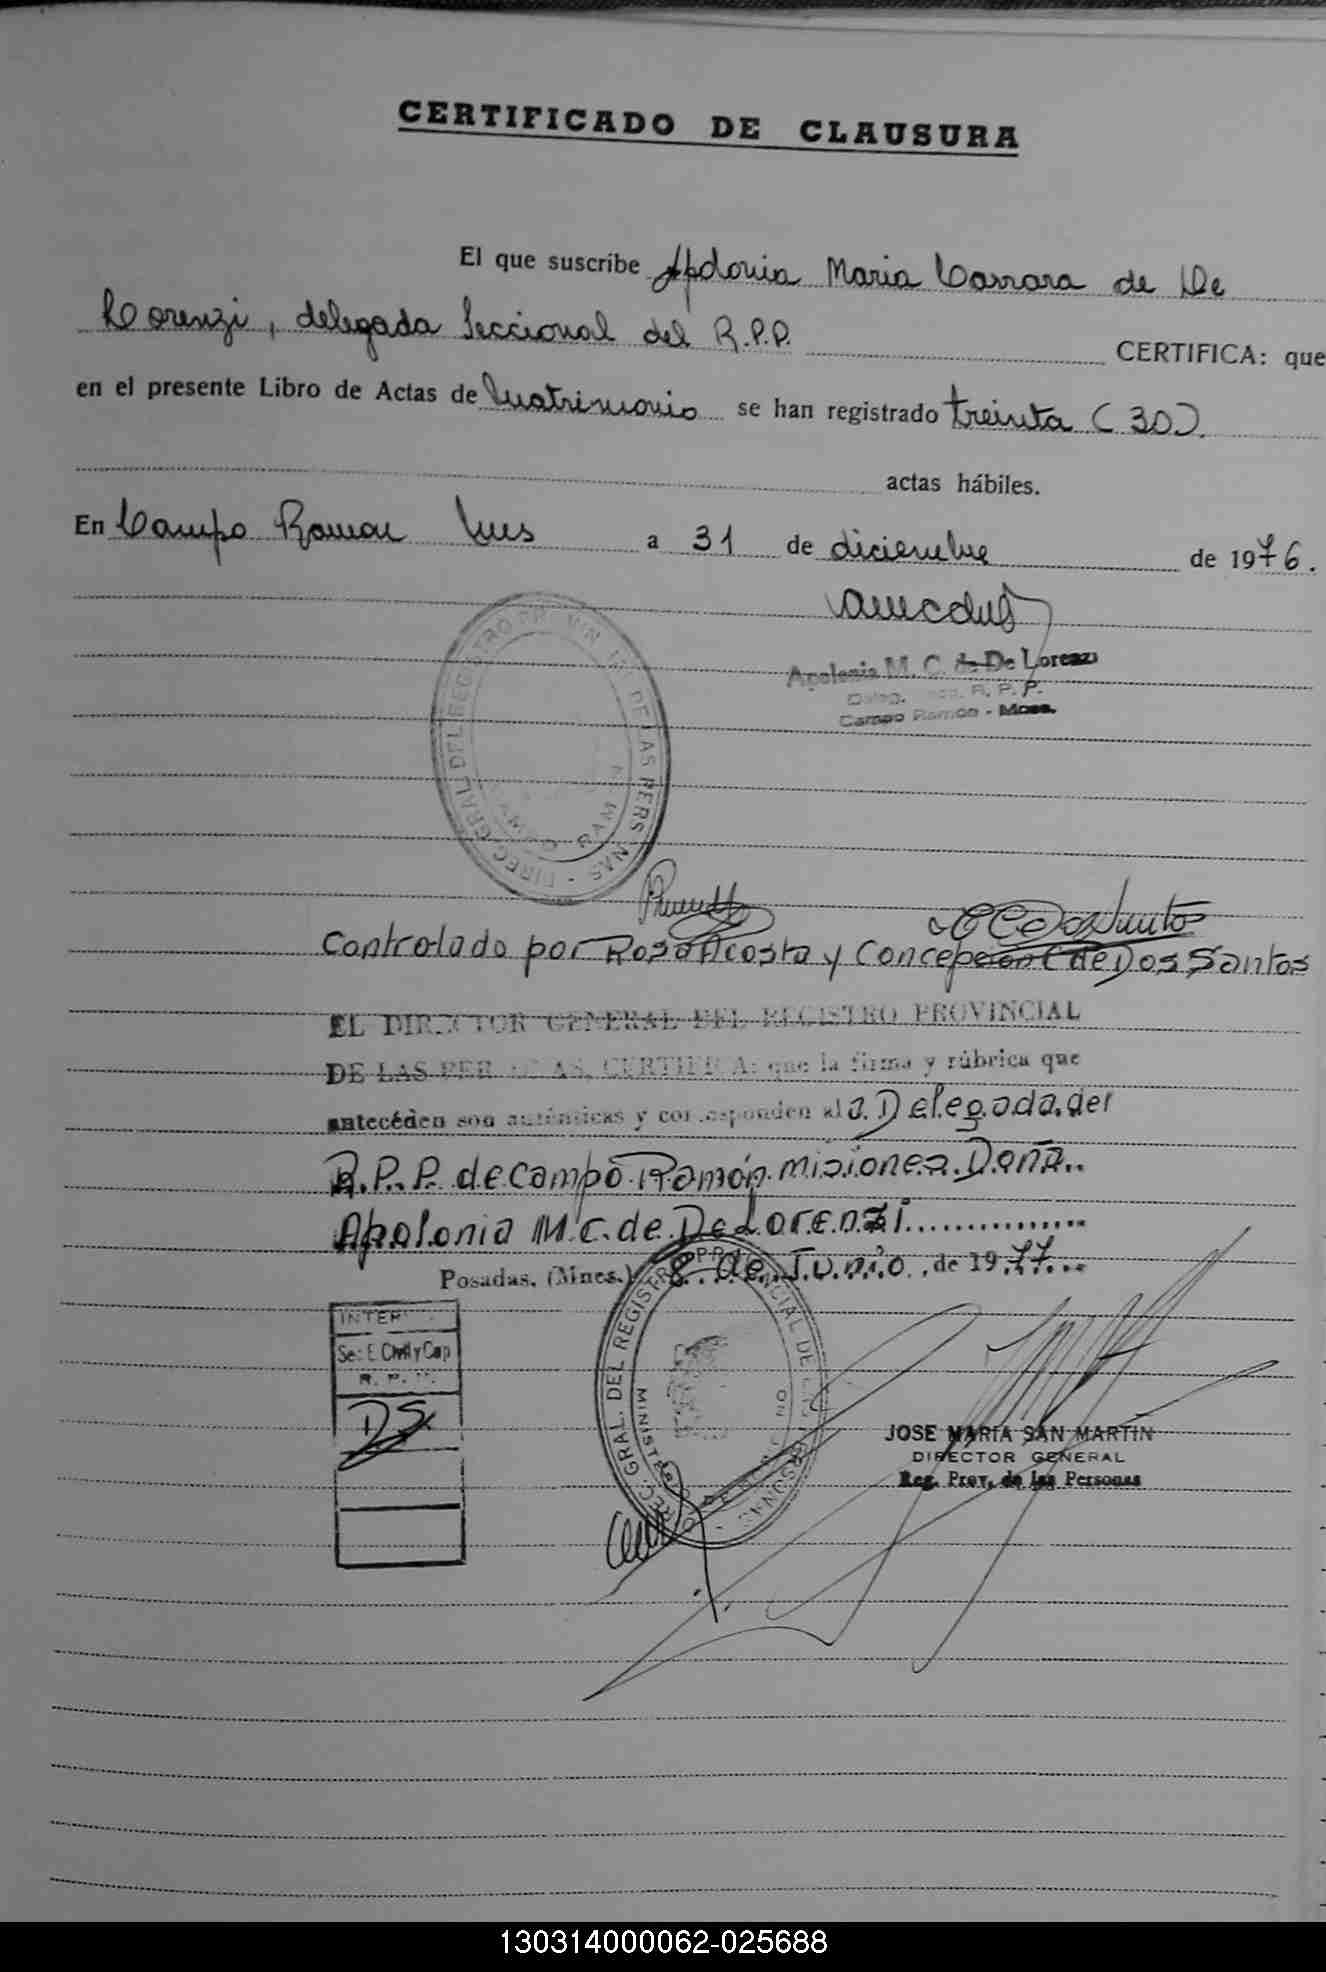 CERTIFICADO DE CLAUSURA
El que suscribe Apolonia Maria Carrara de De
Lorenzi, delegada Seccional del R.P.P. CERTIFICA: que
en el presente Libro de Actas de Matrimonio se han registrado treinta (30).
actas hábiles.
En Campo Ramon Mnes a 31 de diciembre de 1976.
Apolonia M. C. de De Lorenzi
Deleg. R. P. P.
Campo Ramón - Mnes.
DIREC. GRAL. DEL REGISTRO PROVINCIAL DE LAS PERSONAS
CAMPO RAMON
Controlado por Rosa Acosta y Concepcion C de Dos Santos
EL DIRECTOR GENERAL DEL REGISTRO PROVINCIAL
DE LAS PERSONAS, CERTIFICA: que la firma y rúbrica que
antecéden son auténticas y corresponden al a. Delegada. del
R.P.P. de Campo Ramón. Misiones. Doña..
Apolonia M.C. de De Lorenzi...............
Posadas. (Mnes.) 8. de. Junio. de 1977...
INTER
Sec. E. Civil y Cap
R. P. P.
DS
DIREC. GRAL. DEL REGISTRO PROVINCIAL DE LAS PERSONAS
MINISTERIO DE GOBIERNO
JOSE MARIA SAN MARTIN
DIRECTOR GENERAL
Reg. Prov. de las Personas
130314000062-025688